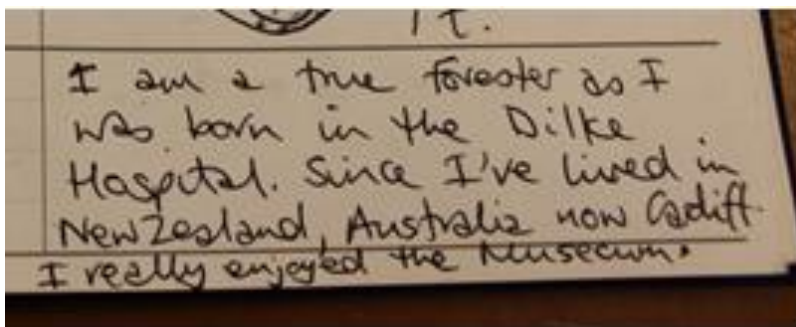 it.
I am a true forester as I
was born in the Dilke
Hospital. Since I've lived in
New Zealand, Australia now Cardiff.
I really enjoyed the Museum.